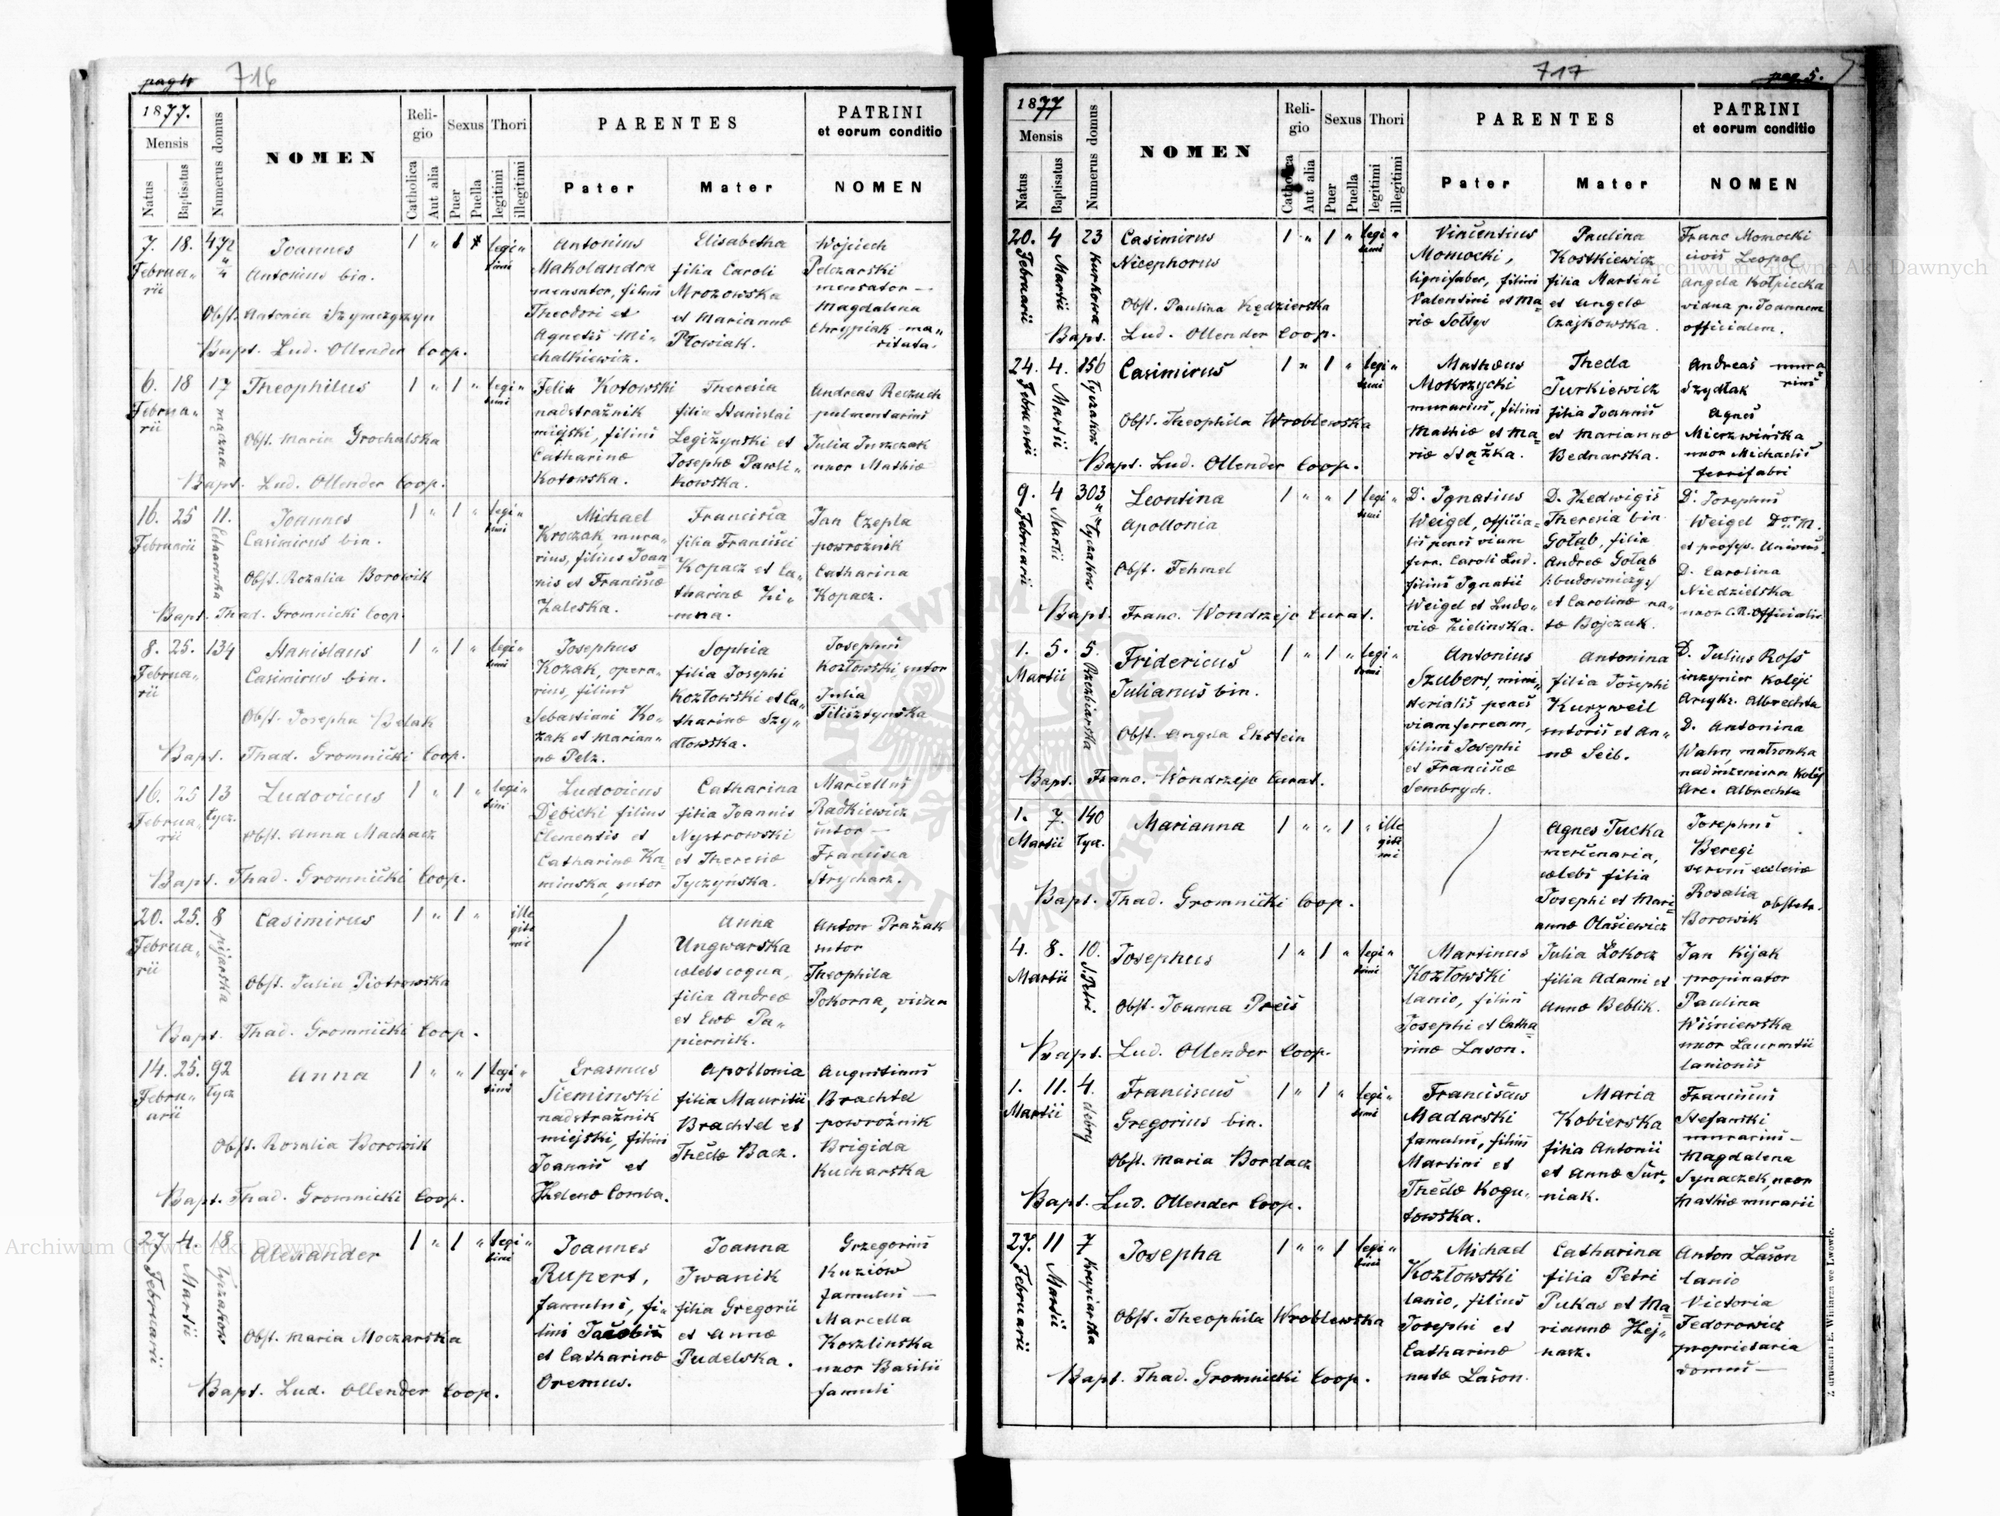 pag 4 716
1877.
Mensis
Natus
Baptisatus
Numerus domus
NOMEN
Reli-
gio
Catholica
Aut alia
Sexus
Puer
Puella
Thori
legitimi
illegitimi
PARENTES
Pater
Mater
PATRINI
et eorum conditio
NOMEN
7. 18. 472 2/4
Februa-
rii
Joannes
Antonius bin.
Obst. Antonia Szymczyszyn
Bapt. Lud. Ollender Coop.
1 " 1 " legi "
timi
Antonius
Makolandra
mensator, filius
Theodori et
Agnetis Mi-
chalkiewicz.
Elisabetha
filia Caroli
Mrozowska
et Mariannæ
Płowiak.
Wojciech
Pelczarski
mensator —
Magdalena
Chrypiak ma-
ritata.
6. 18 17 mączna
Februa-
rii
Theophilus
Obst. Maria Grochalska
Bapt. Lud. Ollender Coop.
1 " 1 " legi "
timi
Felix Kotowski
nadstrażnik
miejski, filius
Catharinæ
Kotowska.
Theresia
filia Stanislai
Legiżynski et
Josephæ Pawli-
kowska.
Andreas Reczuch
pulmentarius
Julia Jurczak
uxor Mathiæ
16. 25 11.
Februarii
Joannes
Casimirus bin.
Obst. Rozalia Borowik
Bapt. Thad. Gromnicki Coop.
1 " 1 " legi "
timi
Michael
Kroczak, mura-
rius, filius Joan-
nis et Franciscæ
Zaleska.
Francisca
filia Francisci
Kopacz et Ca-
tharinæ Zi-
mna.
Jan Czepla
powroźnik
Catharina
Kopacz.
8. 25. 134
Februa-
rii
Stanislaus
Casimirus bin.
Obst. Josepha Belak
Bapt. Thad. Gromnicki Coop.
1 " 1 " legi "
timi
Josephus
Kozak, opera-
rius, filius
Sebastiani Ko-
zak et Marian-
næ Pelz.
Sophia
filia Josephi
Kozłowski et Ca-
tharinæ Szy-
dłowska.
Josephus
Kozłowski, sutor
Julia
Filisztyńska
16. 25 13 Lycz.
Februa-
rii
Ludovicus
Obst. Anna Machacz
Bapt. Thad. Gromnicki Coop.
1 " 1 " legi "
timi
Ludovicus
Dębicki filius
Clementis et
Catharinæ Ka-
minska, sutor
Catharina
filia Joannis
Nystrowski
et Theresiæ
Tyczyńska.
Marcellus
Radkiewicz
sutor —
Francisca
Strycharz.
20. 25. 8 pijarska
Februa-
rii
Casimirus
Obst. Julia Piotrowska
Bapt. Thad. Gromnicki Coop.
1 " 1 " ille
giti
mi
Anna
Ungwarska
cælebs coqua,
filia Andreæ
et Evæ Pa-
piernik.
Anton Prażak
sutor
Theophila
Pokorna, vidua
14. 25. 92 Lycz
Febru-
arii
Anna
Obst. Rosalia Borowik
Bapt. Thad. Gromnicki Coop.
1 " " 1 legi "
timi
Erasmus
Sieminski
nadstrażnik
miejski, filius
Joannis et
Helenæ Comba.
Apollonia
filia Mauritii
Brachtel et
Theclæ Bacz.
Augustinus
Brachtel
powroźnik
Brigida
Kucharska
27 4. 18 Lyczakow
Februarii Martii
Alexander
Obst. Maria Moczarska
Bapt. Lud. Ollender Coop.
1 " 1 " legi "
timi
Joannes
Rupert,
famulus, fi-
lius Jacobi
et Catharinæ
Oremus.
Joanna
Iwanik
filia Gregorii
et Annæ
Pudelska.
Grzegorius
Kuziów
famulus —
Marcella
Koszlinska
uxor Basilii
famuli
717 pag. 5.
1877
Mensis
Natus
Baptisatus
Numerus domus
NOMEN
Reli-
gio
Catholica
Aut alia
Sexus
Puer
Puella
Thori
legitimi
illegitimi
PARENTES
Pater
Mater
PATRINI
et eorum conditio
NOMEN
20. 4 23 Kurkowa
Februarii Martii
Casimirus
Nicephorus
Obst. Paulina Kędzierska
Bapt. Lud. Ollender Coop.
1 " 1 " legi "
timi
Vincentius
Momocki,
lignifaber, filius
Valentini et Ma-
riæ Sołtys
Paulina
Kostkiewicz
filia Martini
et Angelæ
Czajkowska.
Franc Momocki
civis Leopol
Angela Kołpiecka
vidua p. Joannem
officialem.
24. 4. 156 Lyczakow
Februarii Martii
Casimirus
Obst. Theophila Wroblewska
Bapt. Lud. Ollender Coop.
1 " 1 " legi "
timi
Mathæus
Mokrzycki
murarius, filius
Mathiæ et Ma-
riæ Stążka.
Thecla
Turkiewicz
filia Joannis
et Mariannæ
Bednarska.
Andreas mura-
Szydłak rius
Agnes
Mierzwińska
uxor Michaelis
ferrifabri
9. 4 303 Lyczakow
Februarii Martii
Leontina
Apollonia
Obst. Fehmel
Bapt. Franc. Wondrzejc Curat.
1 " " 1 legi "
timi
D. Ignatius
Weigel, officia-
lis penes viam
ferr. Caroli Lud.
filius Ignatii
Weigel et Ludo-
vicæ Zielinska.
D. Hedwigis
Theresia bin
Gołąb, filia
Andreæ Gołąb
/:budowniczy:/
et Carolinæ na-
tæ Bojczuk.
D. Josephus
Weigel Dor M.
et profess. Univers.
D. Carolina
Niedzielska
uxor C.R. Officialis
1. 5. 5.
Martii
Fridericus
Julianus bin.
Obst. Angela Ekstein
Bapt. Franc. Wondrzejc Curat.
1 " 1 " legi "
timi
Antonius
Szubert, mini-
sterialis penes
viam ferream,
filius Josephi
et Franciscæ
Sembrych.
Antonina
filia Josephi
Kurzweil
sutoris et An-
næ Seib.
D. Julius Ross
inzynier koleji
Arcyks. Albrechta
D. Antonina
Wahn, małżonka
nadinzeniera kolej
Arc. Albrechta
1. 7. 140
Martii Lycz.
Marianna
Bapt. Thad. Gromnicki Coop.
1 " " 1 " ille
giti
mi
Agnes Tucka
mercenaria,
cælebs filia
Josephi et Mari-
annæ Olasiewicz
Josephus
Beregi
servus ecclesiæ
Rosalia
Borowik obstetr.
4. 8. 10. S. Petri.
Martii
Josephus
Obst. Joanna Preis
Bapt. Lud. Ollender Coop.
1 " 1 " legi "
timi
Martinus
Kozłowski
lanio, filius
Josephi et Catha-
rinæ Lason.
Julia Łokocz
filia Adami et
Annæ Beblik.
Jan Kijak
propinator
Paulina
Wiśniewska
uxor Laurentii
lanionis
1. 11. 4. debry
Martii
Franciscus
Gregorius bin.
Obst. Maria Bordacz
Bapt. Lud. Ollender Coop.
1 " 1 " legi "
timi
Franciscus
Madarski
famulus, filius
Martini et
Theclæ Kogu-
towska.
Maria
Kobierska
filia Antonii
et Annæ Sur-
niak.
Franciscus
Stefanski
murarius —
Magdalena
Synaczek, uxor
Mathiæ murarii
27. 11 7 Krupiarska
Februarii Martii
Josepha
Obst. Theophila Wroblewska
Bapt. Thad. Gromnicki Coop.
1 " " 1 legi "
timi
Michael
Kozłowski
lanio, filius
Josephi et
Catharinæ
natæ Lason.
Catharina
filia Petri
Pukas et Ma-
riannæ Hej-
nasz.
Anton Lason
lanio
Victoria
Fedorowicz
proprietaria
domus —
Z drukarni E. Winiarza we Lwowie.
Archiwum Główne Akt Dawnych
Archiwum Główne Akt Dawnych